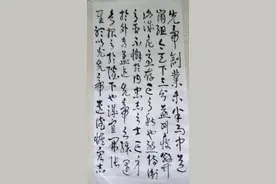 先帝創業未半而中道
崩殂今天下三分益州疲弊
此誠危急存亡之秋也然侍衛
之臣不懈於內忠志之士忘身
於外者蓋追先帝之殊遇
欲報之於陛下也誠宜開張
聖聽以光先帝遺德恢宏志